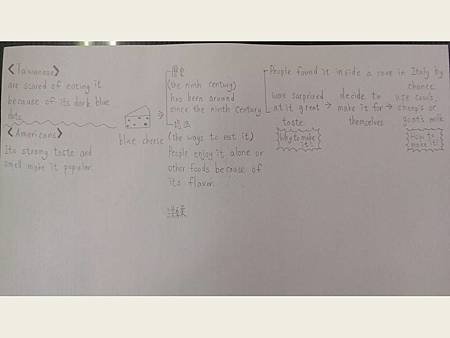 <Taiwanese>
are scared of eating it
because of its dark blue
dots.
<Americans>
Its strong taste and
smell make it popular.
blue cheese
歷史
(the ninth century)
has been around
since the ninth century
吃法
(the ways to eat it)
People enjoy it alone or
other foods because of
its flavor.
People found it inside a cave in Italy by
chance.
was surprised
at it great
taste
Why to make
it?
decide to
make it for
themselves.
use cow's,
sheep's or
goat's milk
How to
make it?